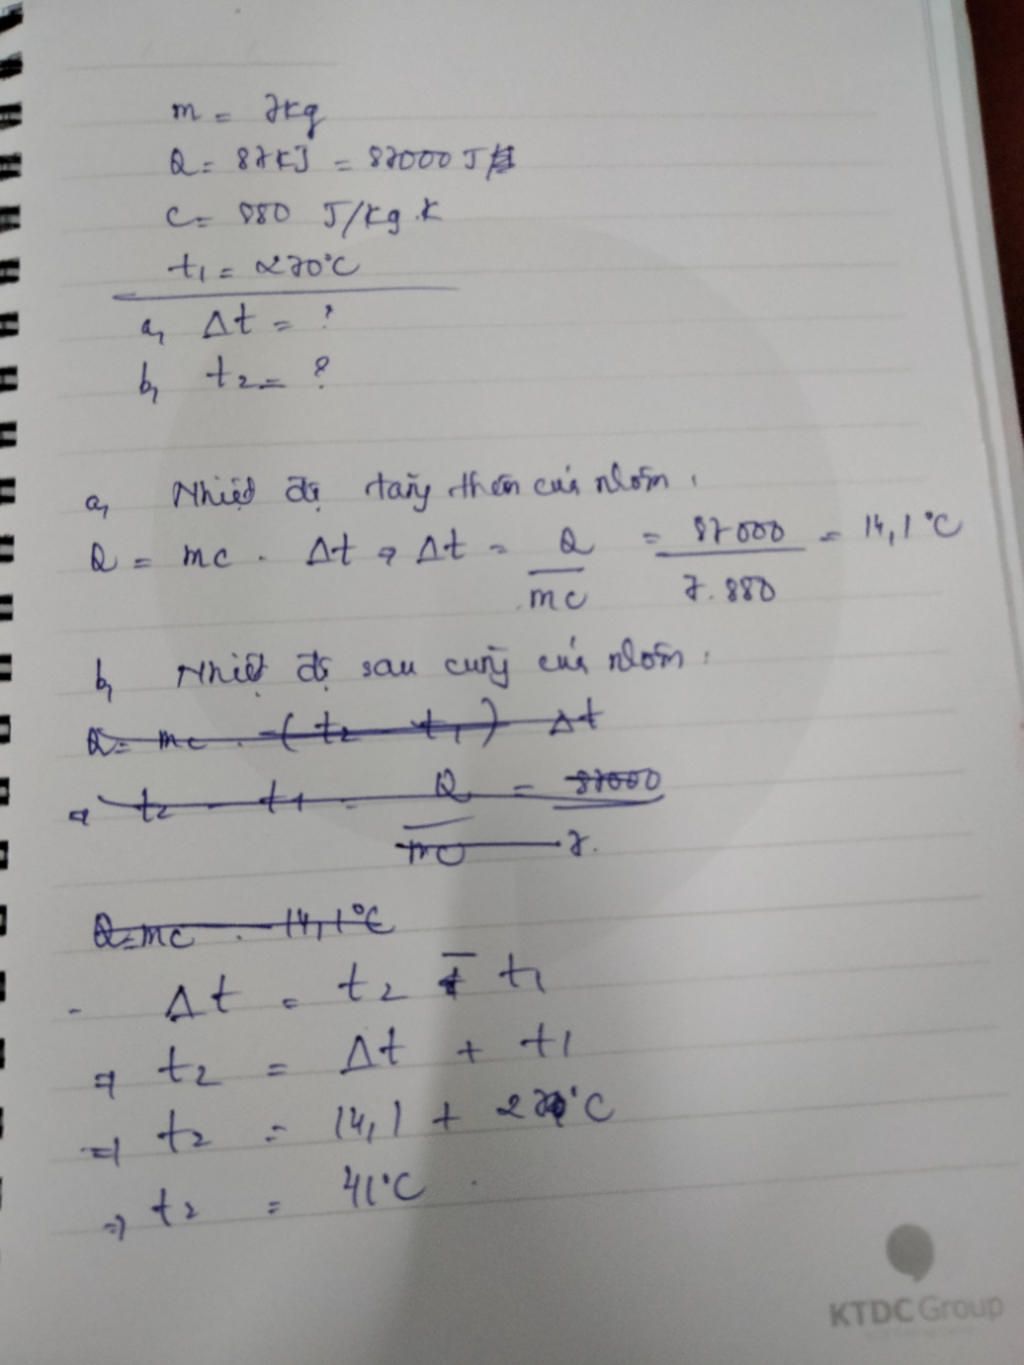 m = 7kg
Q = 87KJ = 87000 J
c = 880 J/kg.K
t1 = 270°C
a, Δt = ?
b, t2 = ?
a, Nhiệt độ tăng thêm của nhôm:
Q = mc . Δt ⇒ Δt = Q/mc = 87000/7.880 = 14,1°C
b, Nhiệt độ sau cùng của nhôm:
Q = mc . (t2 - t1) Δt
⇒ t2 - t1 = Q/mc = 87000/7.
Q = mc . 14,1°C
- Δt = t2 - t1
⇒ t2 = Δt + t1
⇒ t2 = 14,1 + 27°C
⇒ t2 = 41°C.
KTDC Group